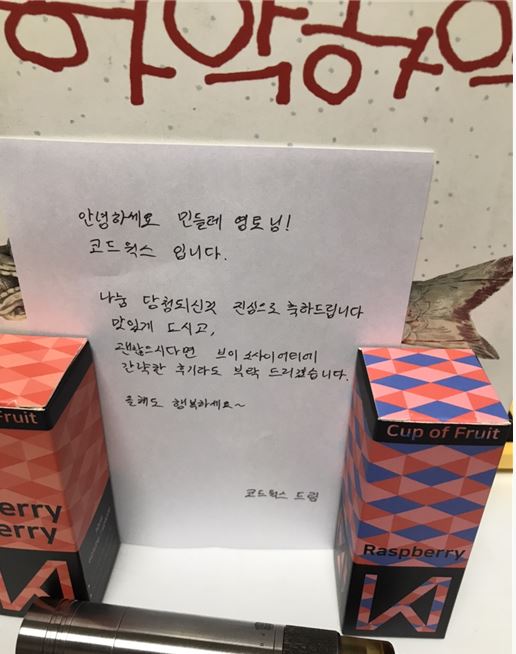 안녕하세요 민들레 영토님!
코드웍스 입니다.
나눔 당첨되신것 진심으로 축하드립니다
맛있게 드시고,
괜찮으시다면 브이 소사이어티에
간략한 후기라도 부탁 드리겠습니다.
올해도 행복하세요~
코드웍스 드림
Fruit
erry
erry
Cup of Fruit
Raspberry